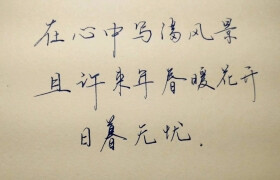 在心中写满风景
且许来年春暖花开
日暮无忧.